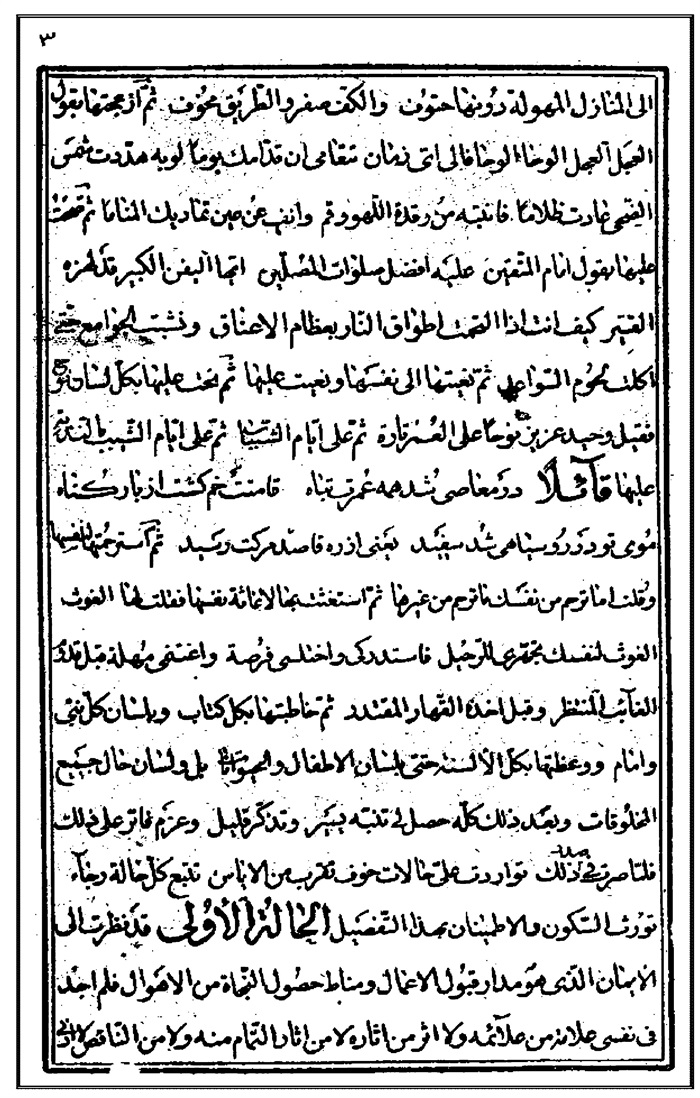 ٣
الى المنازل المهولة دونها حتوف والكف صفر والطريق مخوف ثم ازعجتها بقول
العجل العجل الوحا الوحا فالى اتى زمان تتعامى ان قدامك يوما لو به هددت شمس
الضحى عادت ظلاما فانتبه من رقدة اللهو وقم وانف عن عين تماديك المناما ثم صحت
عليها بقول امام المتقين عليه افضل صلوات المصلين ايها اليفن الكبير قد لهزه
القتير كيف انت اذا التحمت اطواق النار بعظام الاعناق ونشبت الجوامع حتى
اكلت لحوم السواعد ثم نعيتها الى نفسها ونعيت عليها ثم نحت عليها بكل لسان نوح
فقيل وحيد عزيز نوحا على العمر تارة ثم على ايام الشباب ثم على ايام الشيب بالندبة
عليها قائلا در معاصى شد همه عمرت تباه قامتت خم كشت از بار كناه
موى تو در رو سياهى شد سفيد يعنى از ره قاصد مركت رسيد ثم استرحمتها لنفسها
وقلت اما ترحم من نفسك ما ترحم من غيرها ثم استغثت بها لاغاثة نفسها فقلت لها الغوث
الغوث لنفسك تجهزى للرحيل فاستدركى واختلسى فرصة واغتنمى مهلة قبل قدوم
الغائب المنتظر وقبل اخذة القهار المقتدر ثم خاطبتها بكل كتاب وبلسان كل نبى
وامام ووعظتها بكل الالسنة حتى بلسان الاطفال والحيوانات بل ولسان حال جميع
المخلوقات وبعد ذلك كله حصل لى تنبه يسير وتذكر قليل وعزم فاتر على ذلك
فلما صرت فى صدد ذلك تواردت على حالات خوف تقرب من الاياس تتبع كل حالة رجاء
تورث السكون والاطمينان بهذا التفصيل الحالة الاولى قد نظرت الى
الايمان الذى هو مدار قبول الاعمال ومناط حصول النجاة من الاهوال فلم اجد
فى نفسى علامة من علائمه ولا اثر من اثاره لا من اثار التمام منه ولا من الناقص